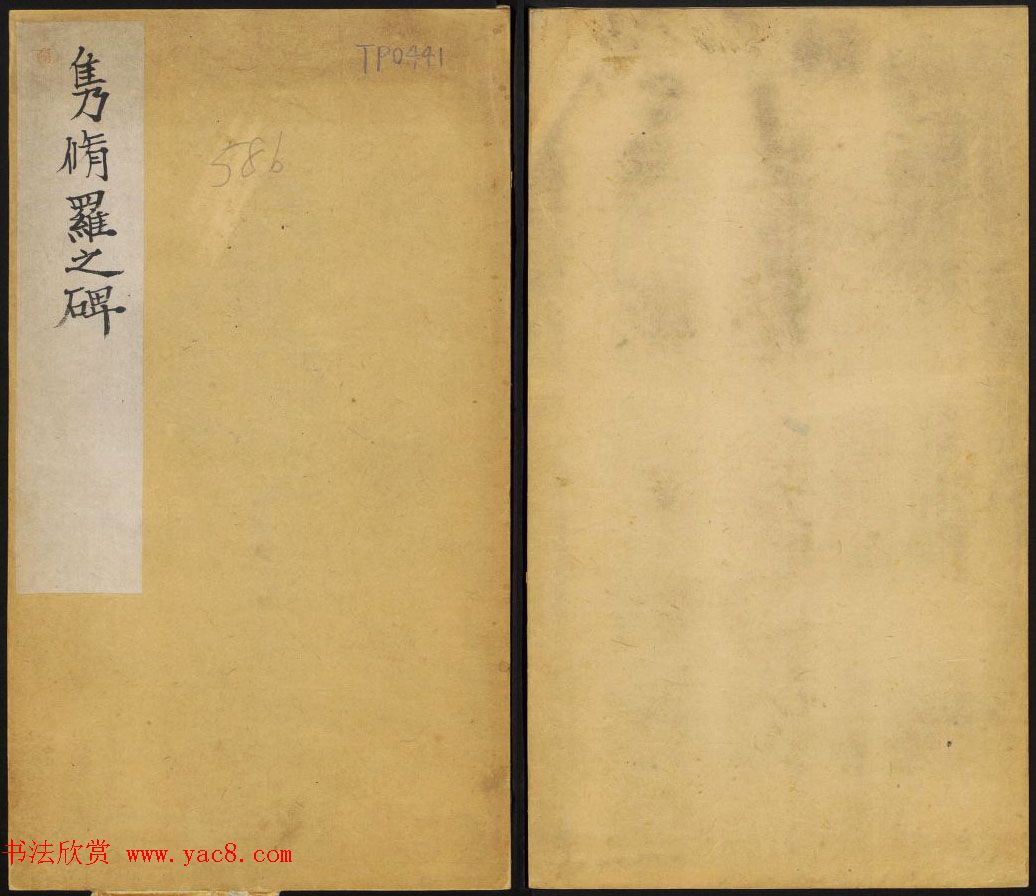 雋脩羅之碑
TP0441
586
书法欣赏 www.yac8.com